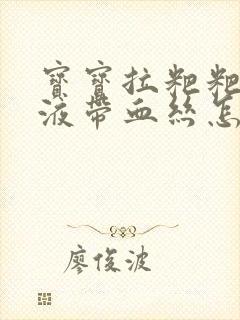 寶寶拉粑粑
液帶血絲怎
廖俊波